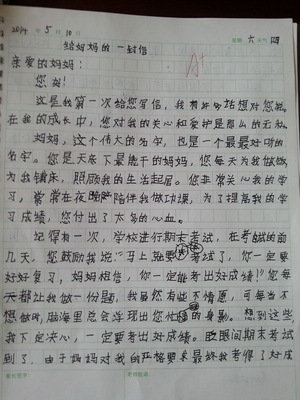 2014 年 5 月 10 日 星期 六 天气 晴
给妈妈的一封信
A+
亲爱的妈妈:
您好!
这是我第一次给您写信,我有好多话想对您说。
在我的成长中,您对我的关心和爱护是那么的无私。
妈妈,这个伟大的名字,也是一个最最好听的
名字。您是天底下最能干的妈妈,您每天为我做饭,
为我铺床,照顾我的生活起居。您非常关心我的学
习,常常在夜晚陪伴我做功课,为了提高我的学
习成绩,您付出了太多的心血。
记得有一次,学校进行期末考试,在考试的前
几天,您鼓励我说:"马上就要考试了,你一定要
好好复习,妈妈相信,你一定能考出好成绩!"您每
天都让我做一份题,我虽然有些不情愿,可每当不
想做时,脑海里总会浮现出您忙碌的身影。想到这些
我下定决心,一定要考出好成绩。眨眼间期末考试
到了,由于妈妈对我的严格要求最终我考得了好成
家长签字 老师批语